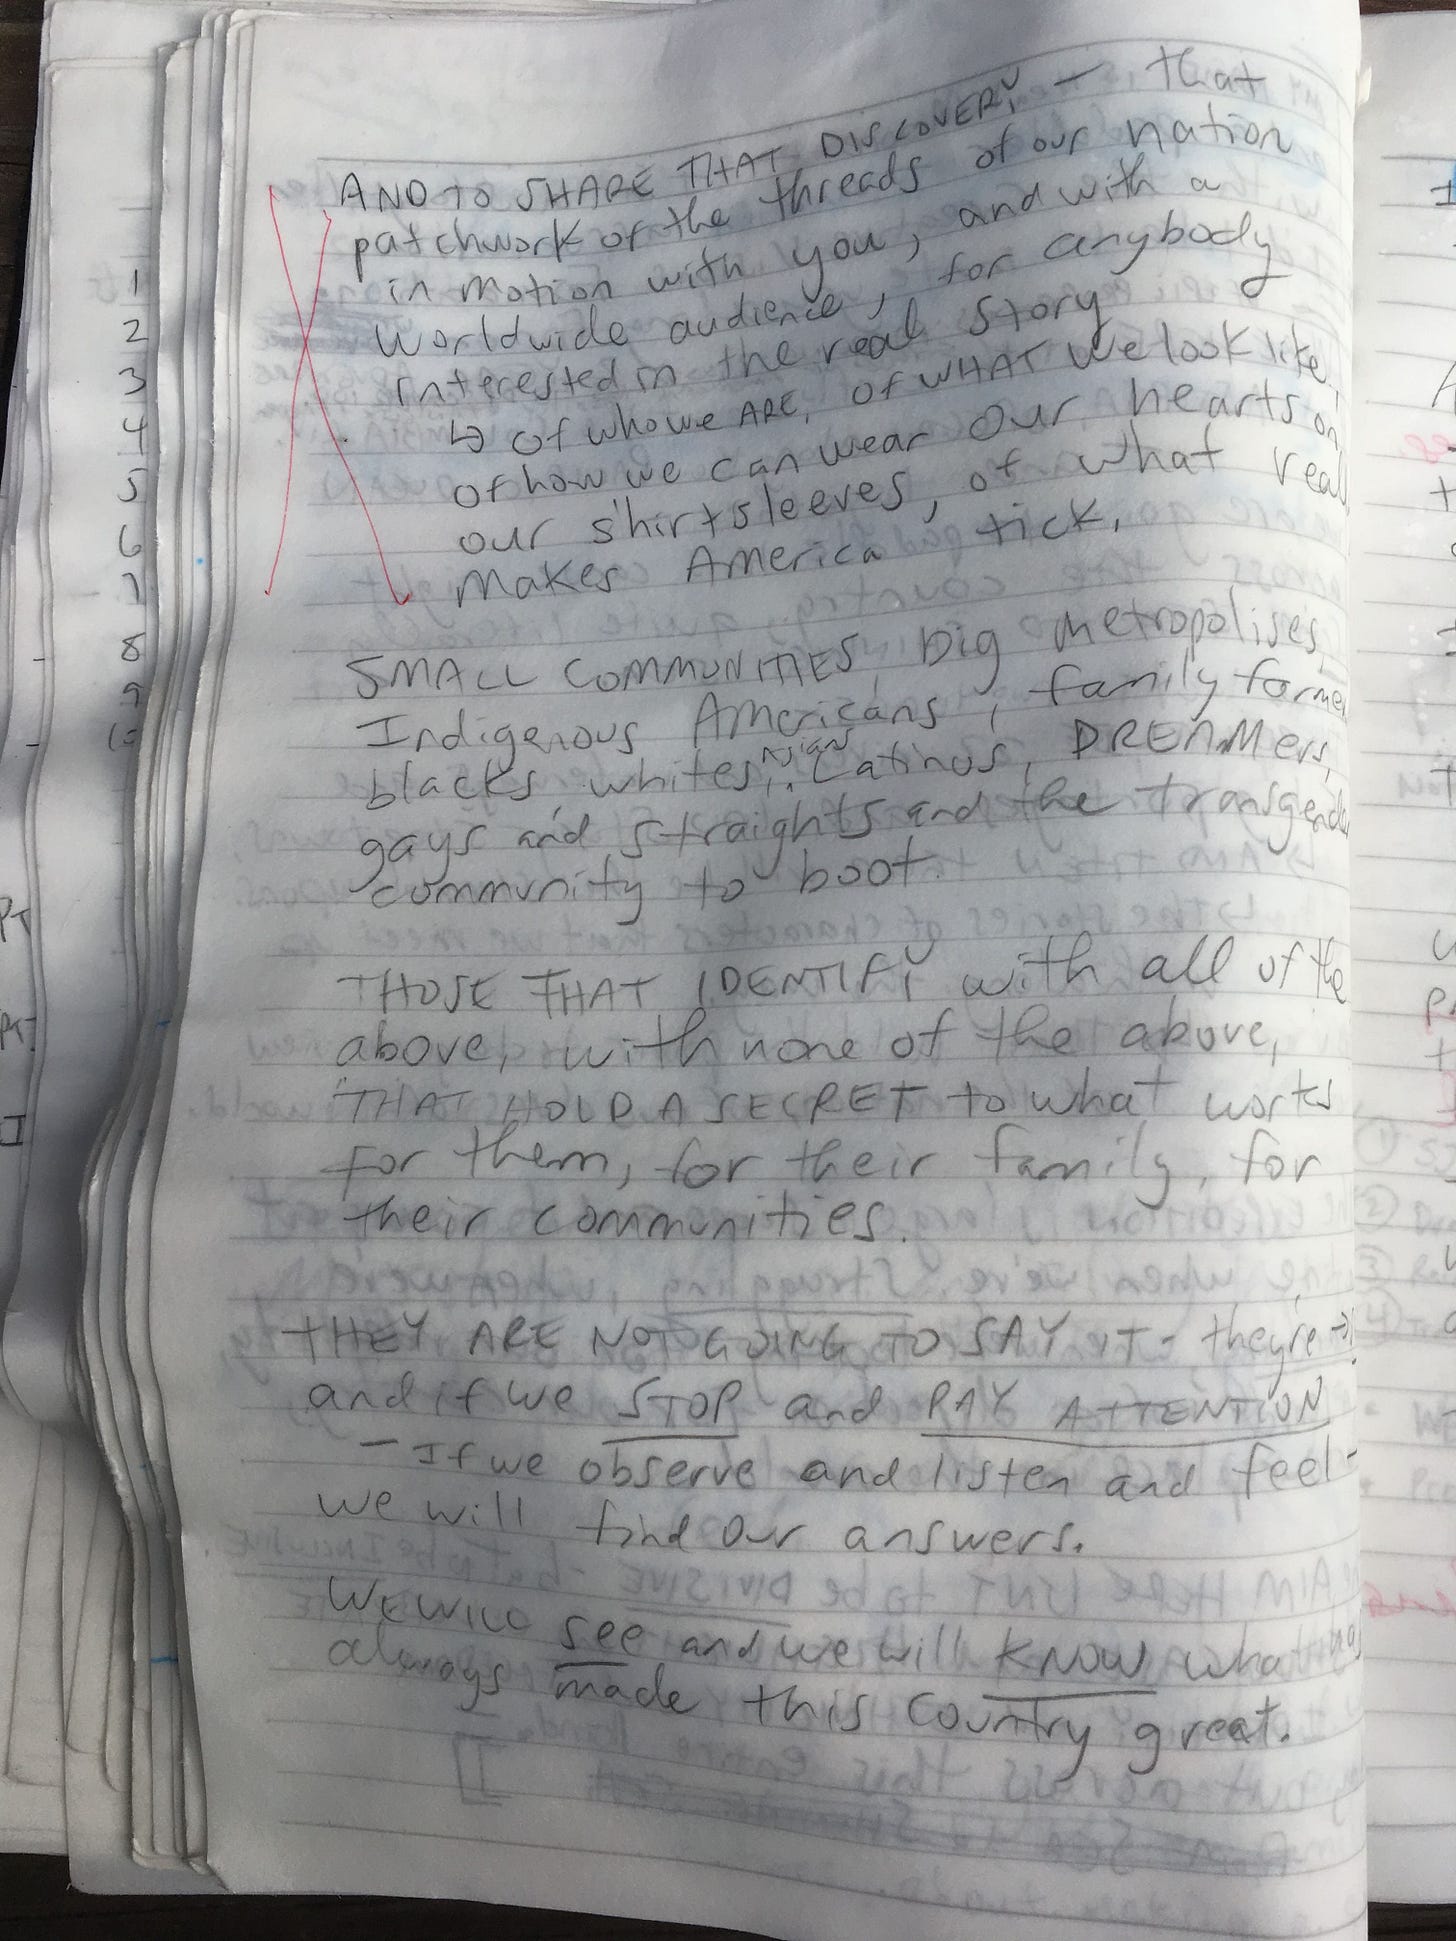 AND TO SHARE THAT DISCOVERY - that
patchwork of the threads of our nation
in motion with you, and with a
worldwide audience, for anybody
interested in the real story
↳ of who we ARE, of WHAT we look like,
of how we can wear our hearts on
our shirtsleeves, of what real
makes America tick.
SMALL COMMUNITIES, big metropolises,
Indigenous Americans, family farme
blacks, whites, Asians, Latinos, DREAMers,
gays and straights and the transgende
community to boot.
THOSE THAT IDENTIFY with all of the
above, with none of the above,
THAT HOLD A SECRET to what works
for them, for their family, for
their communities.
THEY ARE NOT GOING TO SAY IT - they're →
and if we STOP and PAY ATTENTION
- If we observe and listen and feel -
we will find our answers.
WE WILL see and we will KNOW what has
always made this country great.
1
2
3
4
5
6
7
8
9
10